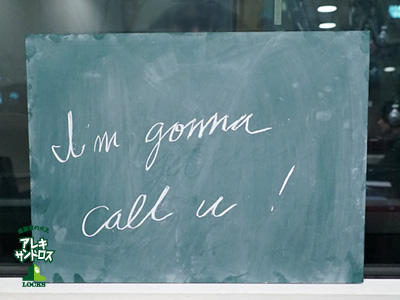 I'm gonna
call u!
アレキ
サンドロス
LOCKS